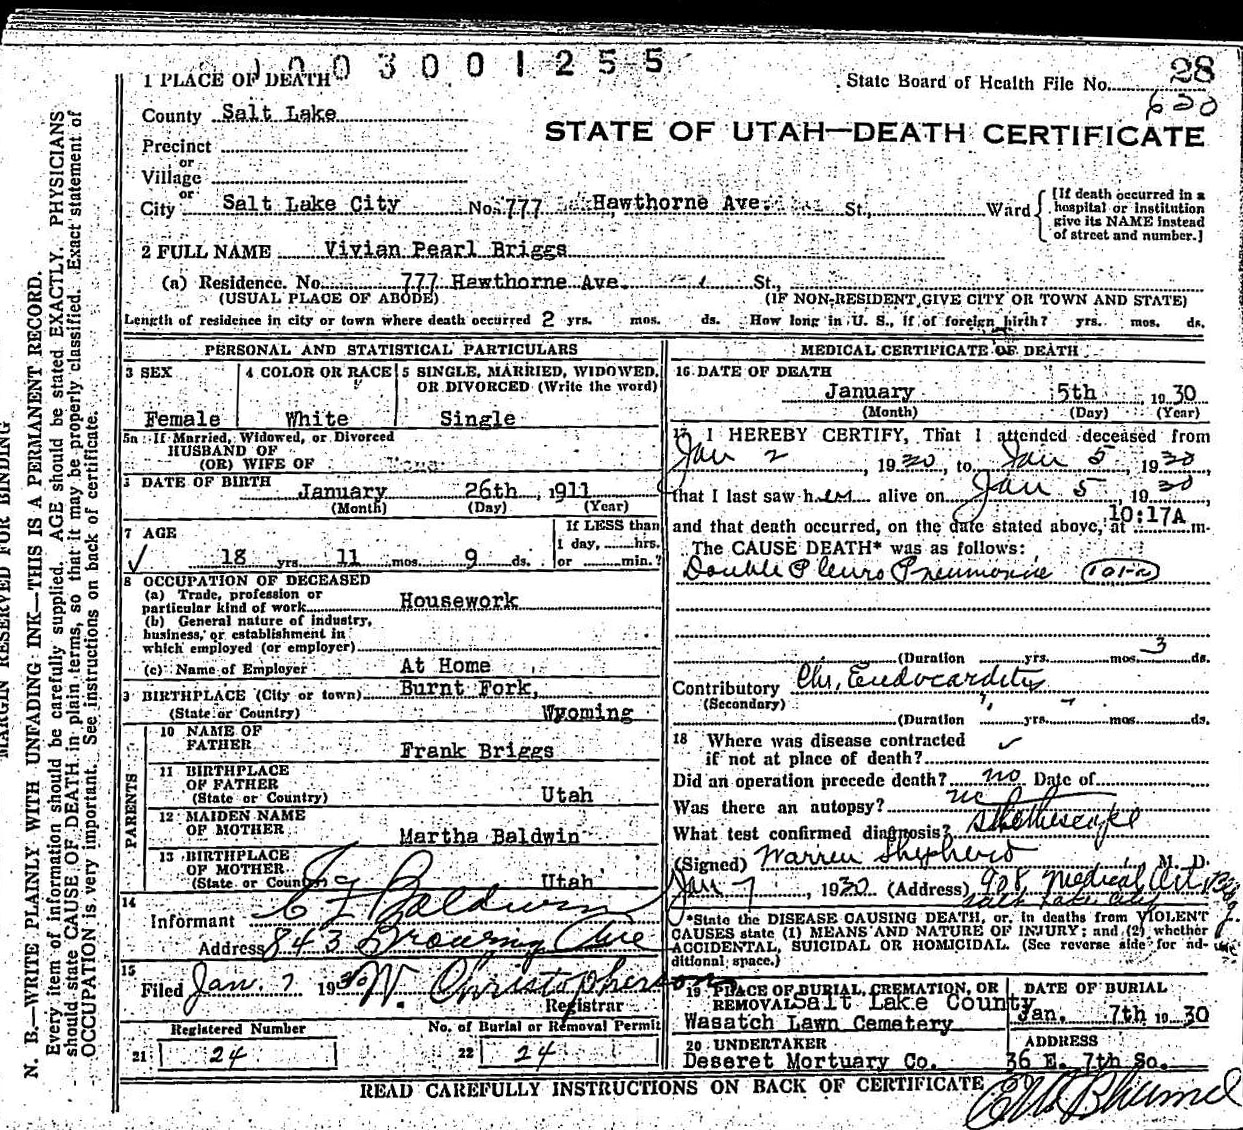 1003001255
1 PLACE OF DEATH
State Board of Health File No. 28
620
County Salt Lake
STATE OF UTAH—DEATH CERTIFICATE
Precinct
or
Village
or
City Salt Lake City No. 777 Hawthorne Ave. St., Ward
[If death occurred in a hospital or institution give its NAME instead of street and number.]
2 FULL NAME Vivian Pearl Briggs
(a) Residence. No. 777 Hawthorne Ave. St.,
(USUAL PLACE OF ABODE) (IF NON-RESIDENT GIVE CITY OR TOWN AND STATE)
Length of residence in city or town where death occurred 2 yrs. mos. ds. How long in U. S., if of foreign birth? yrs. mos. ds.
PERSONAL AND STATISTICAL PARTICULARS
3 SEX 4 COLOR OR RACE 5 SINGLE, MARRIED, WIDOWED,
OR DIVORCED (Write the word)
Female White Single
5a If Married, Widowed, or Divorced
HUSBAND OF
(OR) WIFE OF None
DATE OF BIRTH January 26th, 1911
(Month) (Day) (Year)
7 AGE If LESS than
1 day, hrs.
18 yrs. 11 mos. 9 ds. or min.?
8 OCCUPATION OF DECEASED
(a) Trade, profession or
particular kind of work Housework
(b) General nature of industry,
business, or establishment in
which employed (or employer)
(c) Name of Employer At Home
9 BIRTHPLACE (City or town) Burnt Fork,
(State or Country) Wyoming
PARENTS
10 NAME OF
FATHER Frank Briggs
11 BIRTHPLACE
OF FATHER
(State or Country) Utah
12 MAIDEN NAME
OF MOTHER Martha Baldwin
13 BIRTHPLACE
OF MOTHER
(State or Country) Utah
14
Informant C F Baldwin
Address 843 Browning Ave
15
Filed Jan. 7 1930 W. Christopherson
Registrar
Registered Number No. of Burial or Removal Permit
21 24 22 24
MEDICAL CERTIFICATE OF DEATH
16 DATE OF DEATH
January 5th, 1930
(Month) (Day) (Year)
17 I HEREBY CERTIFY, That I attended deceased from
Jan 2, 1930, to Jan 5, 1930,
that I last saw her alive on Jan 5, 1930,
and that death occurred, on the date stated above, at 10:17A m.
The CAUSE DEATH* was as follows:
Double Pleuro Pneumonia (101-a)
(Duration yrs. mos. 3 ds.
Contributory Chr. Endocarditis
(Secondary)
(Duration yrs. mos. ds.
18 Where was disease contracted
if not at place of death?
Did an operation precede death? no Date of
Was there an autopsy? no
What test confirmed diagnosis? Stethescope
(Signed) Warren Shepherd, M. D.
Jan 7, 1930 (Address) 908 Medical Art Bldg.
Salt Lake City
*State the DISEASE CAUSING DEATH, or, in deaths from VIOLENT
CAUSES state (1) MEANS AND NATURE OF INJURY; and (2) whether
ACCIDENTAL, SUICIDAL OR HOMICIDAL. (See reverse side for ad-
ditional space.)
19 PLACE OF BURIAL, CREMATION, OR DATE OF BURIAL
REMOVAL Salt Lake County
Wasatch Lawn Cemetery Jan. 7th 1930
20 UNDERTAKER ADDRESS
Deseret Mortuary Co. 36 E. 7th So.
READ CAREFULLY INSTRUCTIONS ON BACK OF CERTIFICATE
MARGIN RESERVED FOR BINDING
N. B.—WRITE PLAINLY WITH UNFADING INK—THIS IS A PERMANENT RECORD.
Every item of information should be carefully supplied. AGE should be stated EXACTLY. PHYSICIANS
should state CAUSE OF DEATH in plain terms, so that it may be properly classified. Exact statement of
OCCUPATION is very important. See instructions on back of certificate.